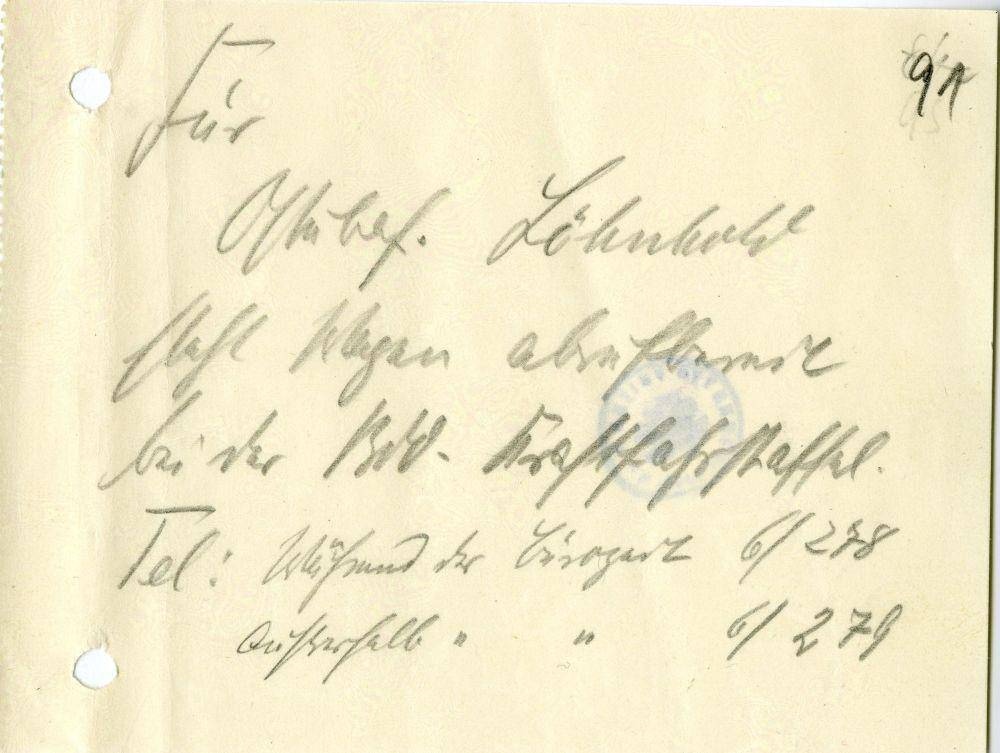 91
Für
Ostubaf. Löhnholt
steht Wagen abrufbereit
bei der BdO-Kraftfahrstaffel.
Tel: Während der Bürozeit 6/278
Außerhalb " " 6/279